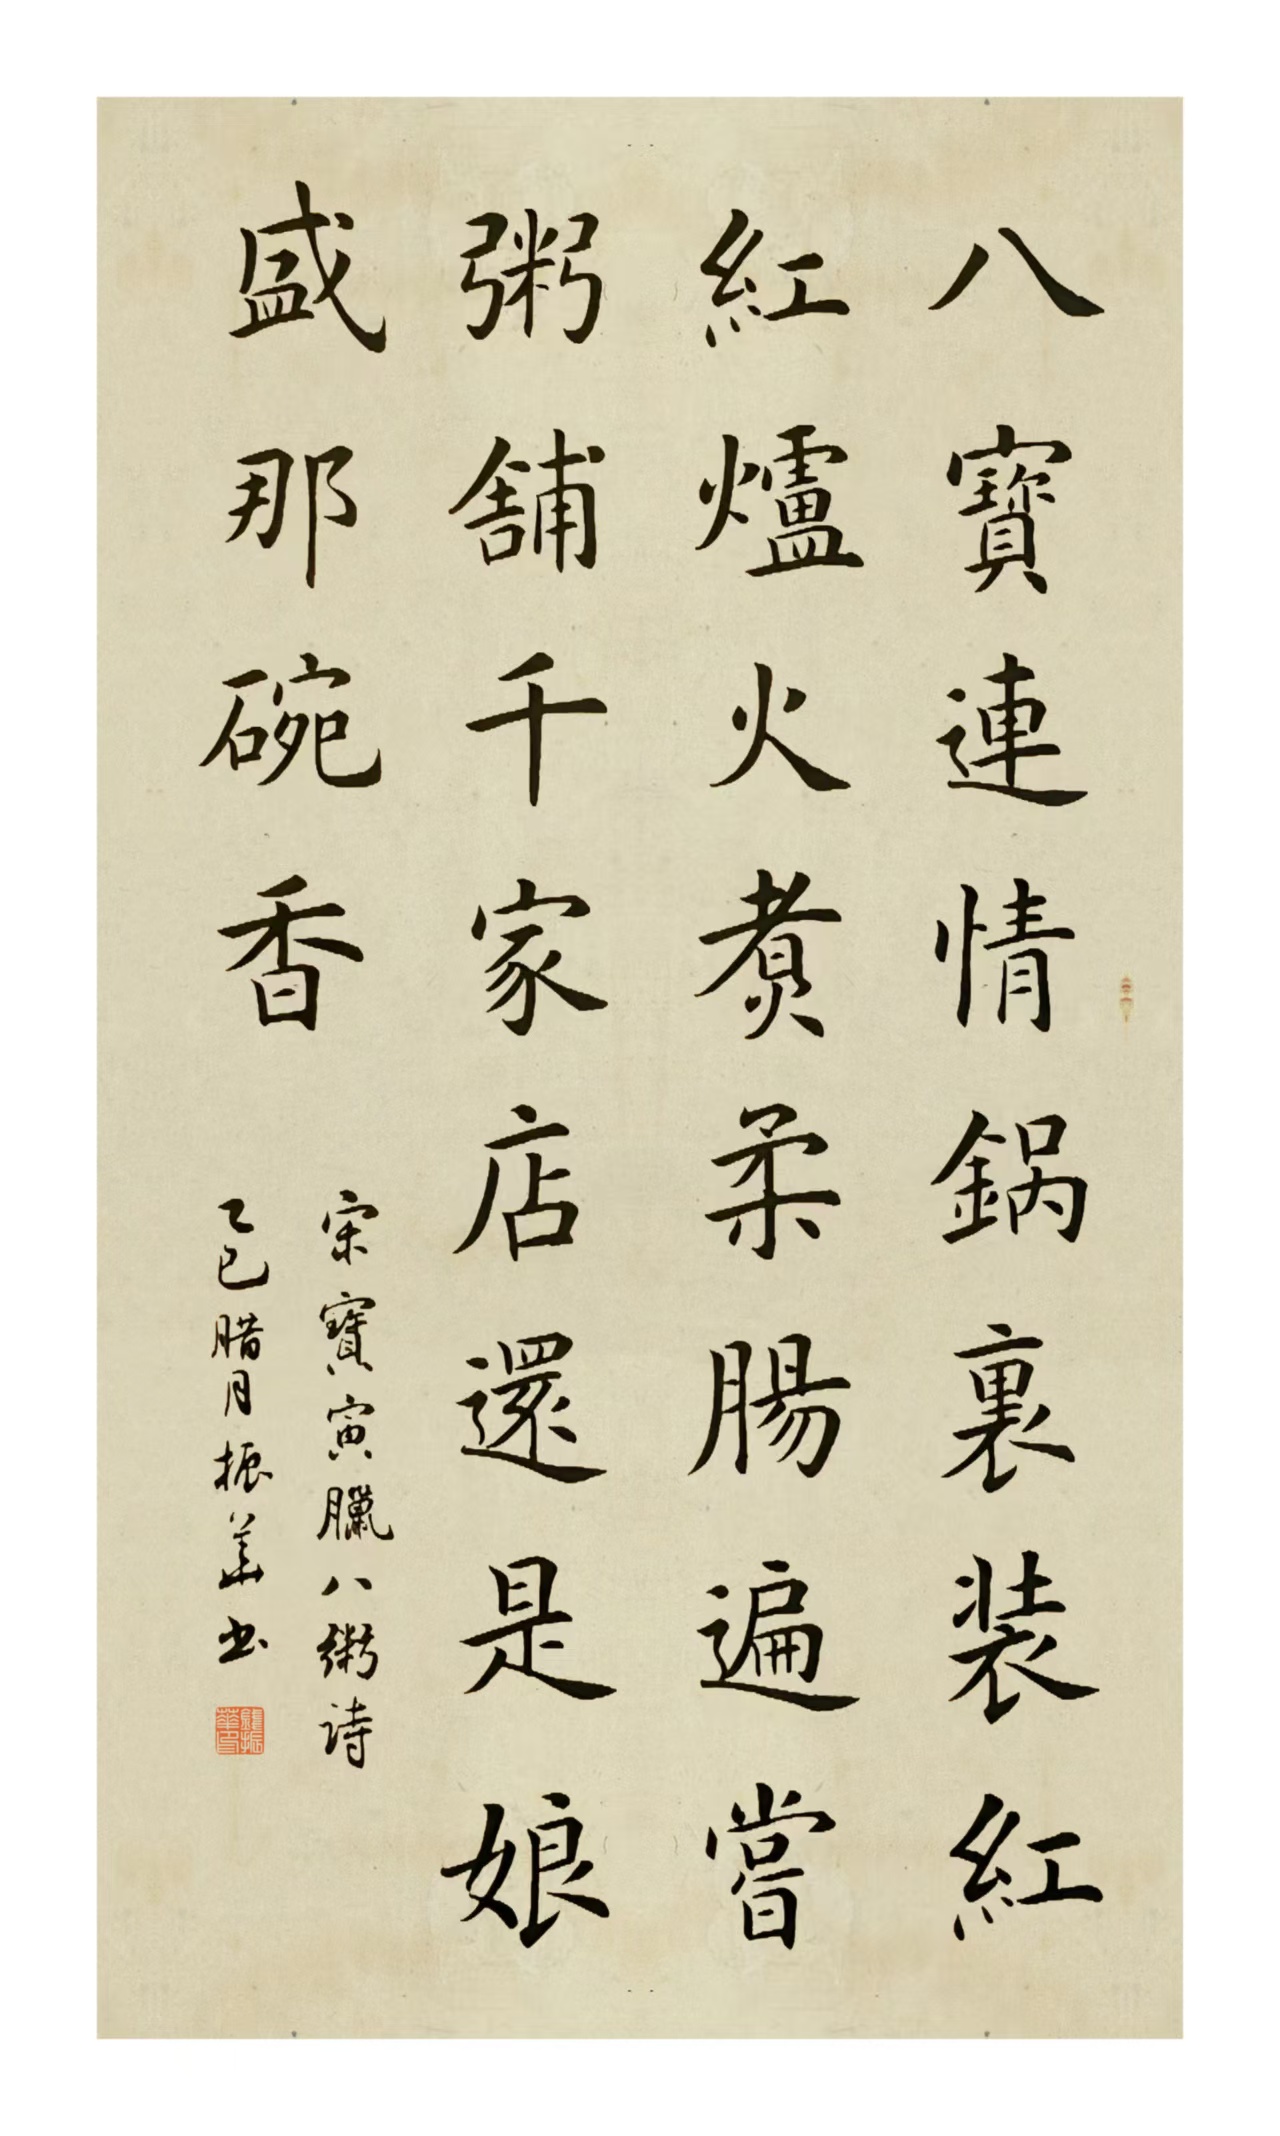 八寶連情鍋裏装紅
紅爐火煑柔腸遍嘗
粥舖千家店還是娘
盛那碗香
宋寶寅臘八粥诗
乙巳腊月振华书